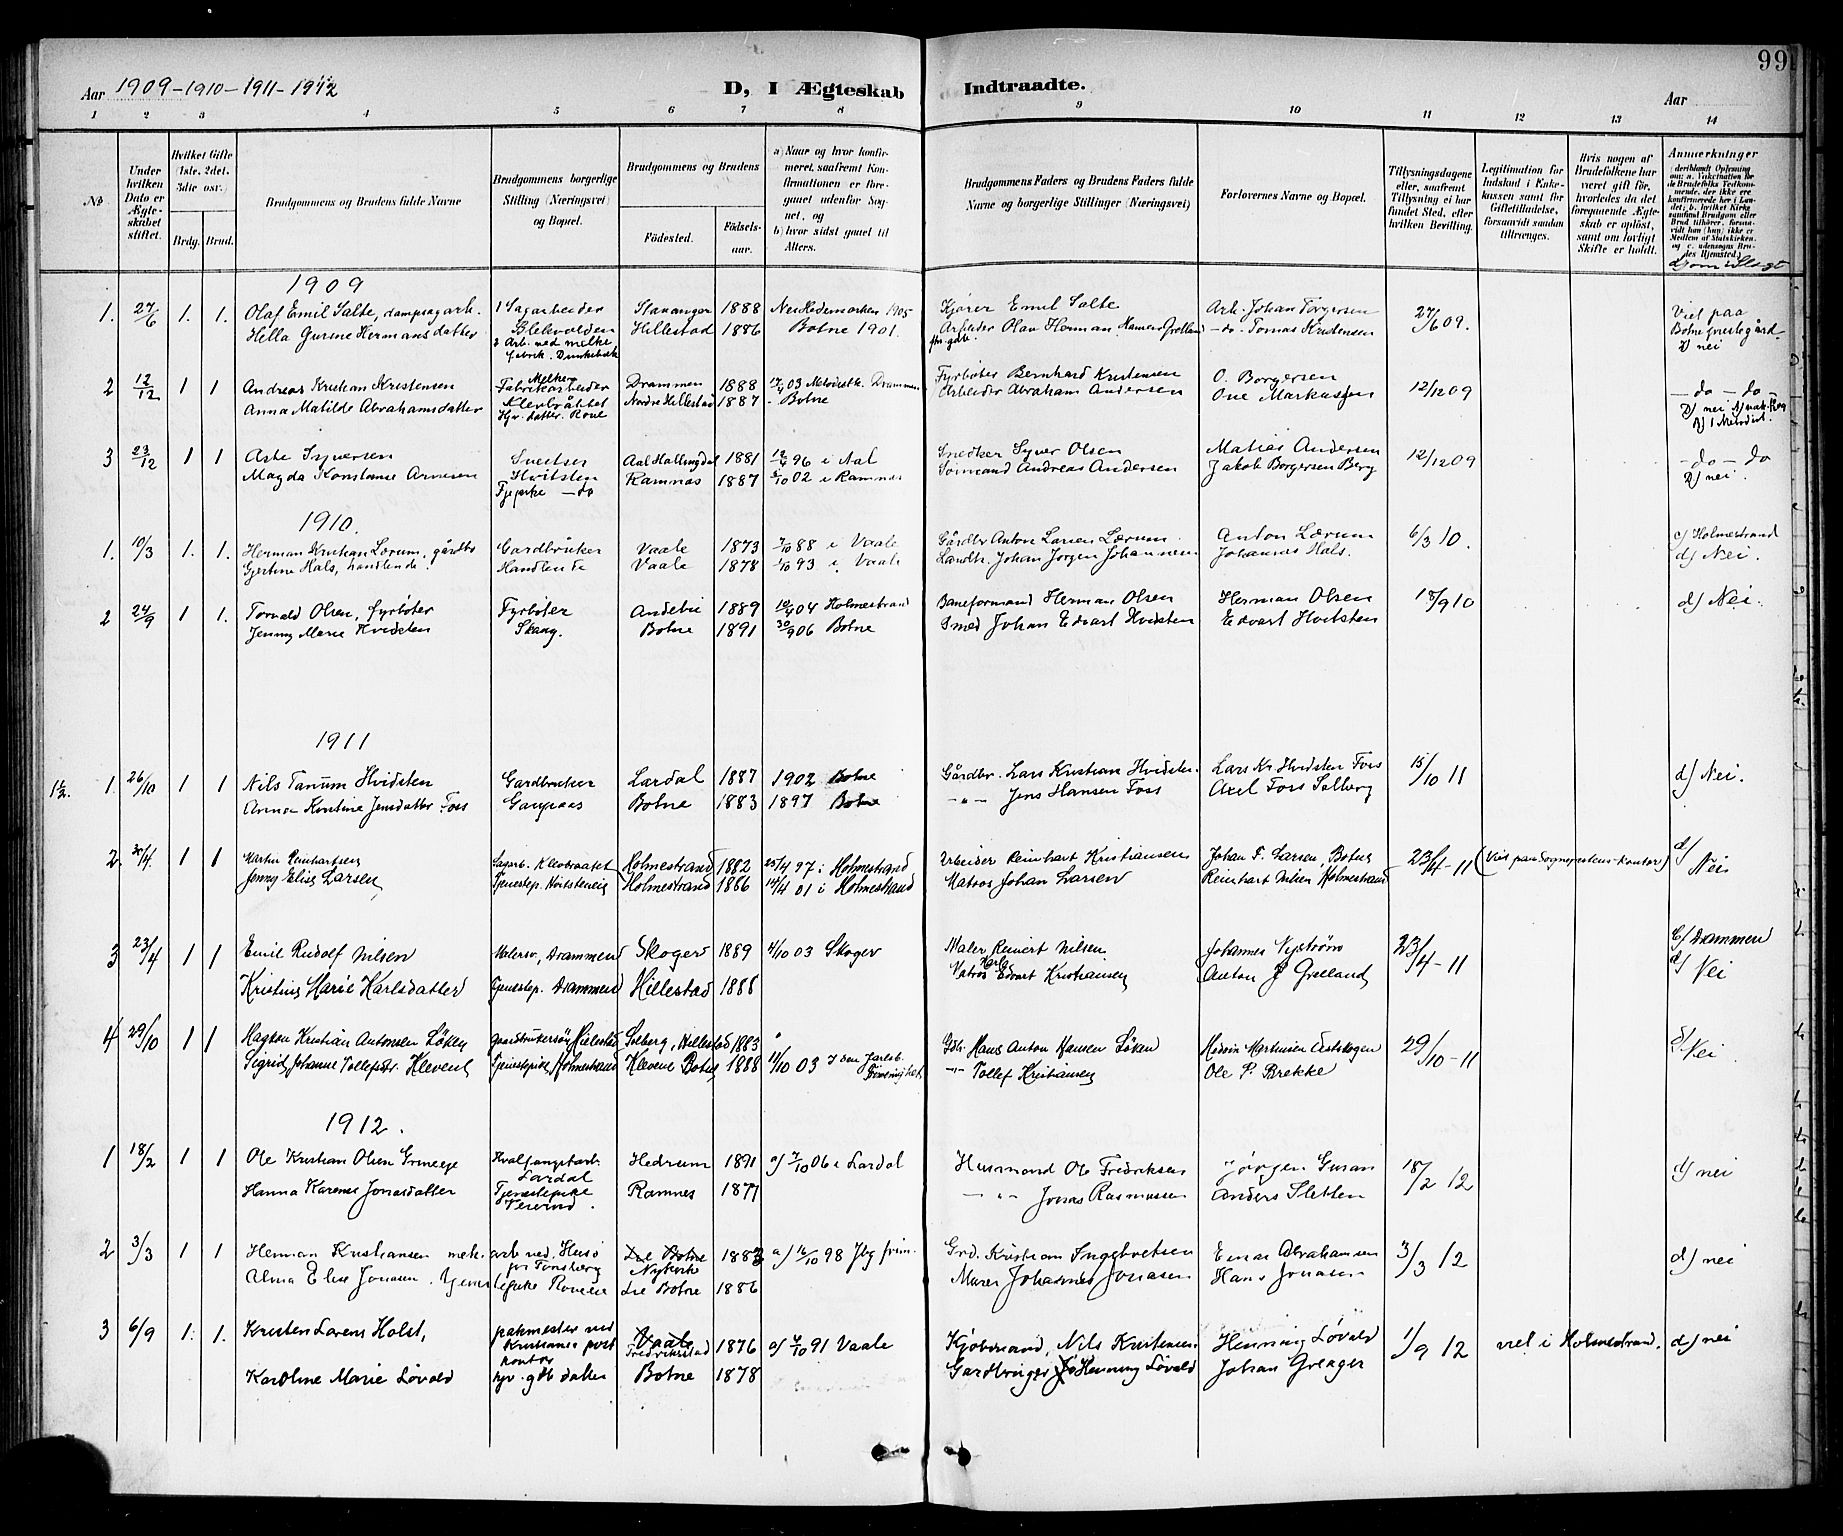 99
Aar 1909-1910-1911-1912
D, I Ægteskab Indtraadte.
Aar
1 2 3 4 5 6 7 8 9 10 11 12 13 14
No.
Under hvilken Dato er Ægteskabet stiftet.
Hvilket Gifte (1ste, 2det, 3die osv.)
Brdg. Brud.
Brudgommens og Brudens fulde Navne
Brudgommens borgerlige Stilling (Næringsvei) og Bopæl.
Brudgommens og Brudens
Fødested.
Fødselsaar.
a) Naar og hvor konfirmeret, saafremt Konfirmationen er foregaaet udenfor Sognet, og
b) hvor sidst gaaet til Alters.
Brudgommens Faders og Brudens Faders fulde Navne og borgerlige Stillinger (Næringsvei)
Forlovernes Navne og Bopæl.
Tillysningsdagene eller, saafremt Tillysning ei har fundet Sted, efter hvilken Bevilling.
Legitimation for Indskud i Enkekassen samt for Giftetilladelse, forsaavidt saadan tiltrænges.
Hvis nogen af Brudefolkene har været gift før, hvorledes da det foregaaende Ægteskab er opløst, samt om lovligt Skifte er holdt.
Anmerkninger
d) om i Slegt
1909
1. 27/6 1. 1. Olaf Emil Salte, dampsagarb. 1 Sagarbeider Stavanger 1888 Nes Hedemarken 1905 Kjører Emil Salte Arb. Johan Torgersen 27/6 09. Viet paa
Hella Gurine Hermansdatter Blekvolden Hillestad 1886 Botne 1901. Arbeider Olav Herman -do- Tomas Knutensen Botne prestegård
2 Arb. ved melkefabrik. D) nei
2 12/12 1 1 Andreas Kristian Kristensen Melkefabrikarbeider Drammen 1888 Drammen Fyrbøter Bernhard Kristensen O. Borgersen 12/12 09 -do-do-
Anna Matilde Abrahamsdatter Nordre Hillestad 1887 - Botne Arbeider Abraham Andersen One Markussen D) nei
3 23/12 1 1 Syversen Sveitser Aal Hallingdal 1881 12/4 96 i Aal Snedker Syver Olsen Matias Andersen 12/12 09 -do-do
Magda Konstanse Arnesen Hvitsten Ramnæs 1887 5/10 02 i Ramnæs Sømand Andreas Andersen Jakob Borgersen Berg D) nei.
Tjepike -do
1910.
1. 10/3 1. 1. Herman Kristian Lærum, gårdbr Gardbruker Vaale 1873 7/10 88 i Vaale Gårdbr Anton Larsen Lærum Anton Lærum 6/3 10. c) Holmestrand
Gjertine Hals, handlende. Handlende Vaale 1878 1/10 93 i Vaale Landh. Johan Jørgen Johannesen Johannes Hals. d) Nei.
2 24/9 1 1. Torvald Olsen, fyrbøter Fyrbøter Andebu 1889 10/4 04 Holmestrand Baneformand Herman Olsen Herman Olsen 18/9 10 d) Nei.
Jenny Marie Hvidsten Skaug. Botne 1891 30/9 06 Botne Smed Johan Edvart Hvidsten Edvart Hvitsten
1911
1. 26/10 1 1 Nils Tanum Hvidsten Gardbruker Lardal 1887 1902 Botne Gårdbr. Lars Kristian Hvidsten Lars Kr Hvidsten Fos 15/10 11 d) Nei.
Anna Kristine Jensdatter Foss Gaupaas Botne 1883 1897 Botne -"- Jens Hansen Foss Axel Foss Solberg
2. 30/4. 1 1 Martin Reinhartsen Sagarb. Klevbraatet Holmestrand 1882 25/4 97 i Holmestrand Arbeider Reinhart Kristiansen Johan F. Larsen, Botne 23/4-11 (Viet paa Sogneprestens kontor) d) Nei
Jenny Elise Larsen Tjenestep. Holmestrand 1886 14/4 01 i Holmestrand Matros Johan Larsen Reinhart Nilsen Holmestrand
3 23/4 1 1 Emil Rudolf Nilsen Malersv., Drammen Skoger 1889 4/10 03 Skoger Maler Reinert Nilsen Johannes Nystrøm 23/4-11 c) Drammen
Kristine Marie Karlsdatter Tjenestep. Drammen Hillestad 1888 Matros Karl Edvart Kristiansen Anton J Grelland d) Nei
4 29/10 1 1 Haakon Kristian Antonsen Løken gaardbrukersøn Hillestad Solberg, Hillestad 1883 Gdb. Hans Anton Hansen Løken Martinsen 29/10-11 d) Nei
Sigrid Johanne Tollefsdtr. Klevene Tjenestepike Holmestrand Klevene Botne 1888 11/10 03 -"- Tollef Kristiansen Ole P. Brekke
1912.
1 18/2 1 1 Ole Kristian Olsen Hvalfangstarb. Lardal Hedrum 1891 a) 7/10 06 i Lardal Husmand Ole Fredriksen Jørgen Gusan 18/2 12 d) nei
Hanna Karense Jonasdatter Tjenestepike Ramnes 1877 -"- Jonas Rasmussen Anders Sletten
2 3/3 1 1 Herman Kristiansen mek- arb ved. Husø pr Tønsberg Lie Botne Nykirke 1883 a) 16/10 98 Jbg frim. Grd. Kristian Ingebretsen Einar Abrahamsen 3/3 12 d) nei
Alma Elise Jonasen. tjenestepike Lie Botne 1886 Murer Johannes Jonasen Hans Jonasen
3 6/9 1. 1. Kristen Lorens Holst, pakmester ved Kristiania post kontor Vaale Fredriksstad 1876 a) 4/10 91 Vaale Kjøbmand, Nils Kristensen Henning Løvald 1/9 12 viet i Holmestrand. d) nei
Karoline Marie Løvald hjv. gdb datter Botne 1878 Gardbruger Henning Løvald Johan Greager